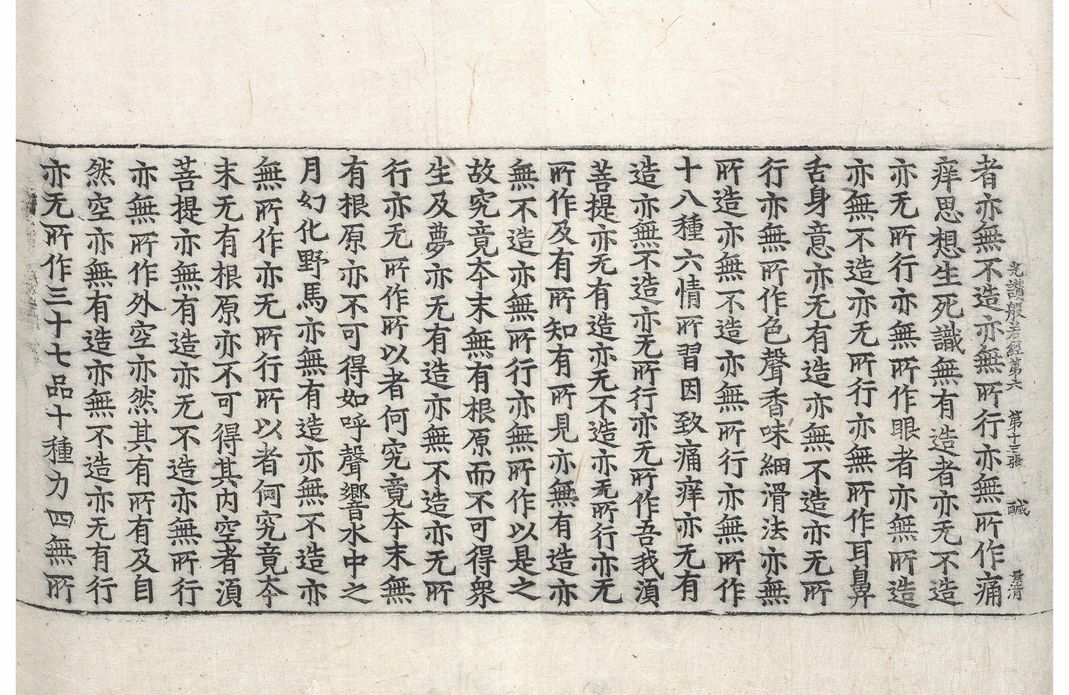 光讚般若經第六 第十三張 鹹
者亦無不造亦無所行亦無所作痛
痒思想生死識無有造者亦无不造
亦无所行亦無所作眼者亦無所造
亦無不造亦无所行亦無所作耳鼻
舌身意亦无有造亦無不造亦无所
行亦無所作色聲香味細滑法亦無
所造亦無不造亦無所行亦無所作
十八種六情所習因致痛痒亦无有
造亦無不造亦无所行亦无所作吾我湏
菩提亦无有造亦无不造亦无所行亦无
所作及有所知有所見亦無有造亦
無不造亦無所行亦無所作以是之
故究竟夲末無有根原而不可得衆
生及夢亦无有造亦無不造亦无所
行亦无所作所以者何究竟夲末無
有根原亦不可得如呼聲響水中之
月幻化野馬亦無有造亦無不造亦
無所作亦无所行所以者何究竟夲
末无有根原亦不可得其内空者湏
菩提亦無有造亦无不造亦無所行
亦無所作外空亦然其有所有及自
然空亦無有造亦無不造亦无有行
亦无所作三十七品十種力四無所